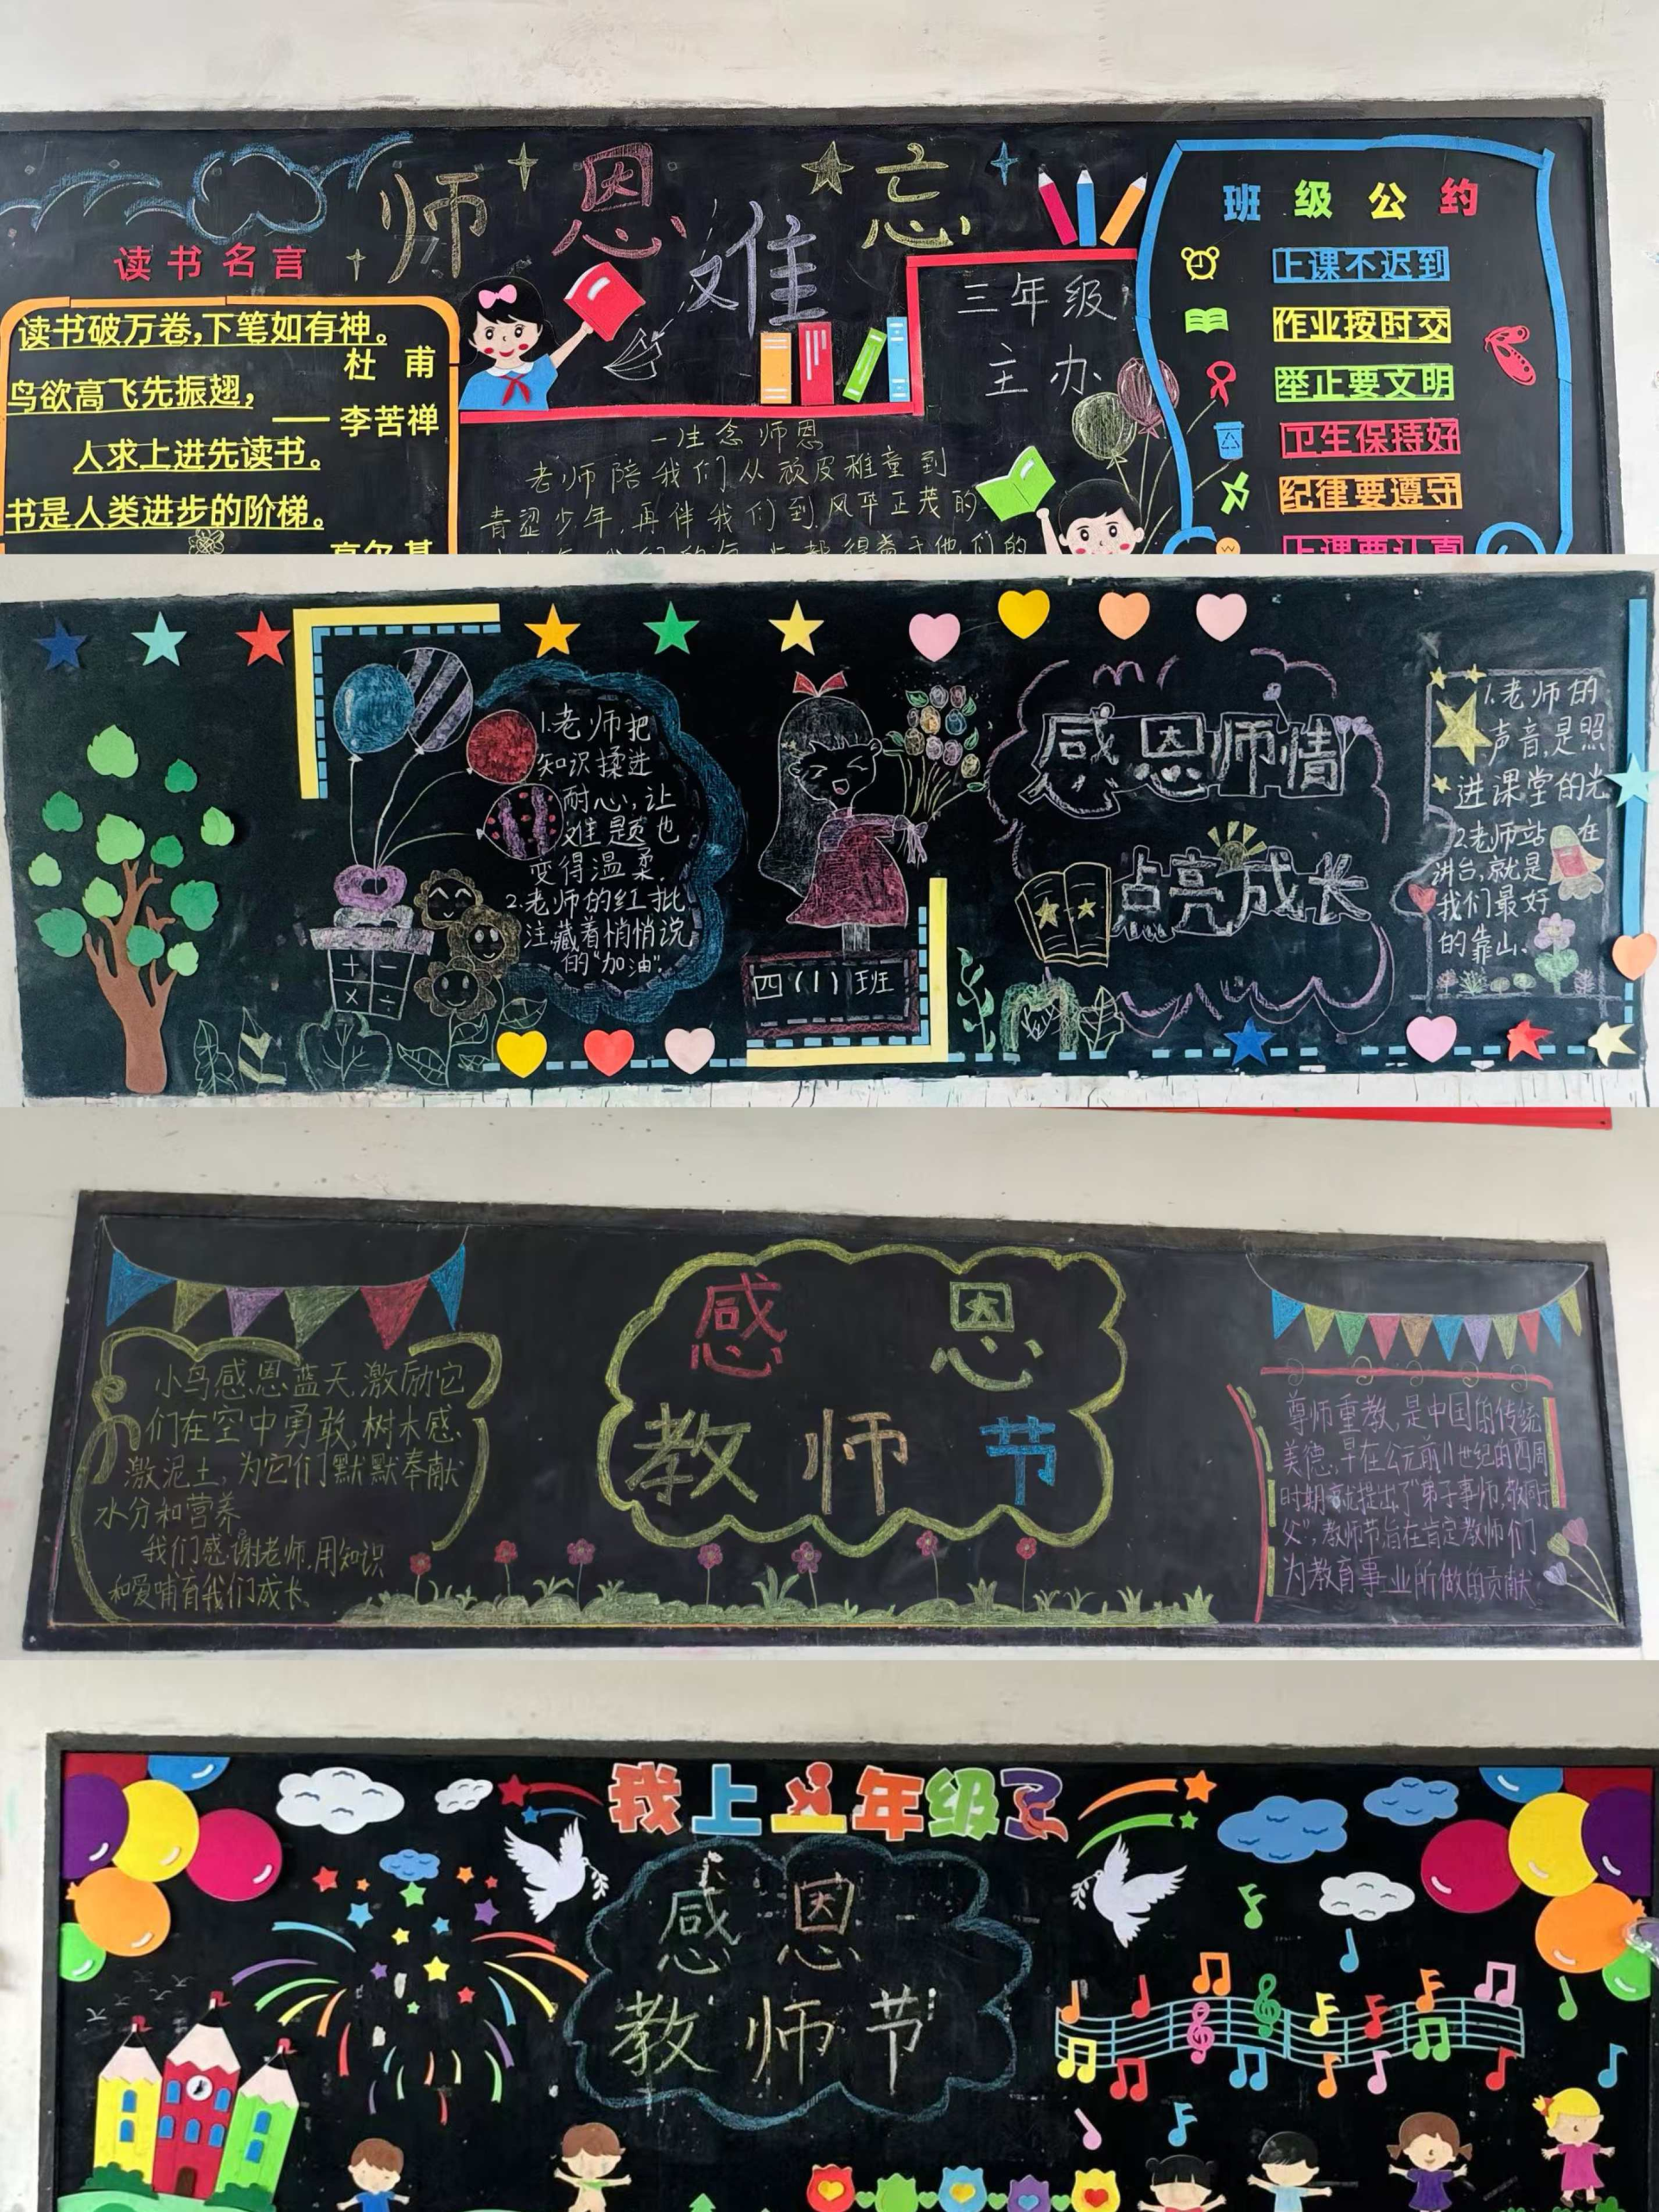 师恩难忘
读书名言
读书破万卷,下笔如有神。
杜 甫
鸟欲高飞先振翅,
—— 李苦禅
人求上进先读书。
书是人类进步的阶梯。
高尔基
三年级
主办
一生念师恩
老师陪我们从顽皮稚童到
青涩少年,再伴我们到风华正茂的
班级公约
上课不迟到
作业按时交
举止要文明
卫生保持好
纪律要遵守
上课要认真
1.老师把
知识揉进
耐心,让
难题也
变得温柔.
2.老师的红批
注,藏着悄悄说
的“加油”.
+ -
× ÷
四(1)班
感恩师情
点亮成长
1.老师的
声音,是照
进课堂的光
2.老师站在
讲台,就是
我们最好
的靠山、
感恩
教师节
小鸟感恩蓝天,激励它
们在空中勇敢,树木感
激泥土,为它们默默奉献
水分和营养
我们感谢老师,用知识
和爱哺育我们成长、
尊师重教,是中国的传统
美德,早在公元前11世纪的四周
时期就提出了“弟子事师,敬同于
父”,教师节旨在肯定教师们
为教育事业所做的贡献
我上一年级了
感恩
教师节